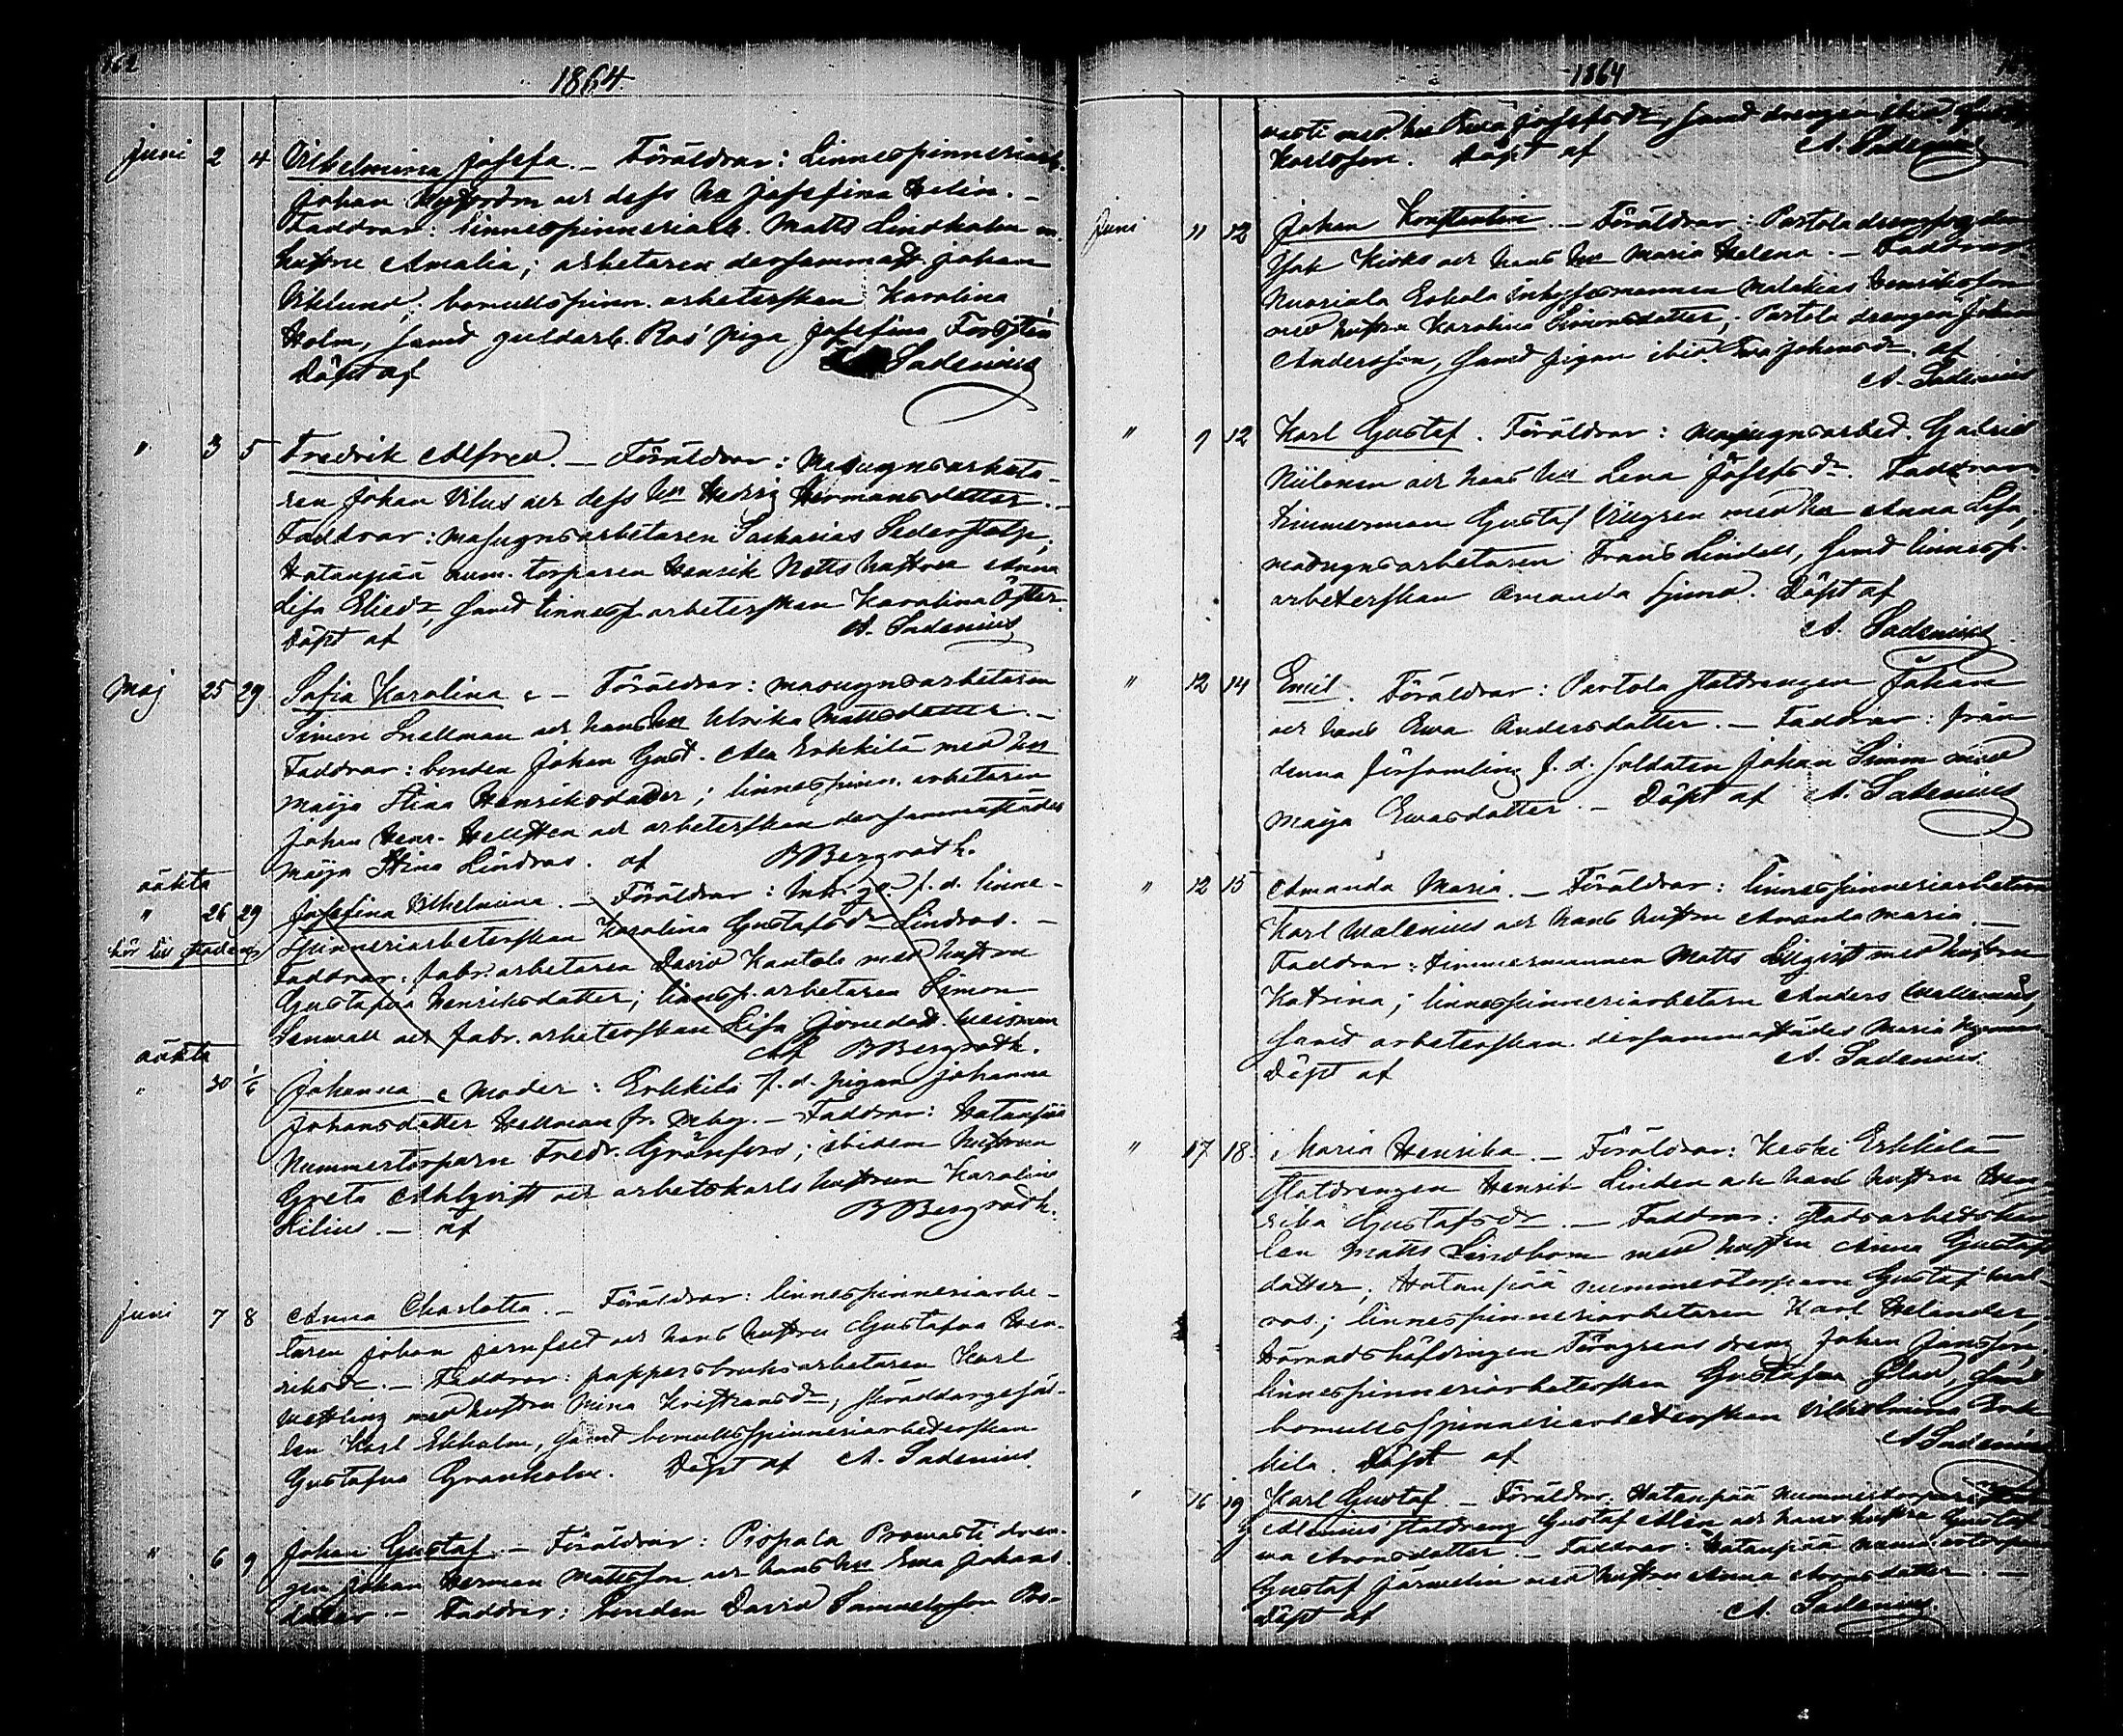 162
1864
Juni 2 4 Vilhelmina Josefa. – Föräldrar: Linnespinneriarb.
Johan och dess hu Josefina Helin. –
Faddrar: linnespinneriarb. Matts Lindholm m.
hustru Amalia; arbetaren dersammast. Johan
Viklund; bomullsspinn. arbeterskan Karolina
Holm, samt guldarb. Ros' piga Josefina Forstén
Döpt af Sadenius
" 3 5 Fredrik Alfred. – Föräldrar: Masugnsarbeta-
ren Johan Vilus och dess hu Hedvig Hermansdatter. –
Faddrar: masugnsarbetaren Sakarias Sederstolp,
Hatanpää num. torparen Henrik Notts hustru Anna
Lisa Eliedr, samt linnesp. arbeterskan Karolina Öster-
Döpt af A. Sadenius
Maj 25 29 Sofia Karolina. – Föräldrar: masugnsarbetaren
Simon Snellman och hans hu Ulrika Mattsdatter. –
Faddrar: bonden Johan Gust. Ala Erkkilä med hu
Maija Stina Henriksdatter; linnespinn. arbetaren
Johan Henr. Hellsten och arbeterskan dersammastädes
Maija Stina Lindroos. af B Bergroth.
oäkta
" 26 29 Josefina Vilhelmina. – Föräldrar: f.d. linne-
hör till staden spinneriarbeterskan Karolina Gustafsdr Lindroos. –
Faddrar: fabr. arbetaren David Kantola med hustru
Gustafva Henriksdatter; linnesp. arbetaren Simon
Senwall och fabr. arbeterskan Lisa Weisman
Af B Bergroth.
oäkta
" 30 1/6 Johanna. Moder: Erkkilä f.d. pigan Johanna
Johansdatter Hellman fr. – Faddrar: Hatanpää
Nummertorparn Fredr. Grönfors; ibidem hustrun
Greta Ahlqvist och arbetskarls hustrun Karolina
Lilius. – af B Bergroth.
Juni 7 8 Anna Charlotta. – Föräldrar: linnespinneriarbe-
taren Johan Jernfelt och hans hustru Gustafva Hen-
riksdr. – Faddrar: pappersbruksarbetaren Karl
Wettling med hustru Mina Kristiansdr, skräddargesäl-
len Karl Ekholm, samt bomullsspinneriarbeterskan
Gustafva Granholm. Döpt af A. Sadenius
" 6 9 Johan Gustaf. – Föräldrar: Pispala Provasti dren-
gen Johan Herman Mattsson och hans hu Eva Johans-
datter – Faddrar: bonden David Samuelsson Pro-
1864
vasti med hu Eva Josefsdr, samt drengen ibid
Karlsson. Döpt af A. Sadenius
Juni 11 12 Johan Konstantin. – Föräldrar: Partola
Isak Kicks och hans hu Maria Helena. – Faddrar:
Nuoriala Eskola Inhysesmannen Malakias Henriksson
med hustru Karolina Simonsdatter; Partola drengen Johan
Andersson, samt pigan ibid. Eva Johansdr. af
A. Sadenius
" 9 12 Karl Gustaf. Föräldrar: masugnsarbed. Gabriel
Niilonen och hans hu Lena Josefsdr. Faddrar:
timmerman Gustaf Villgren med hu Anna Lisa,
masugnsarbetaren Frans Lindell, samt linnesp.
arbeterskan Amanda Döpt af
A. Sadenius
" 12 14 Emil. Föräldrar: Partola statdrengen Johan
och hans Ewa Andersdatter. – Faddrar: från
denna församling f.d. soldaten Johan Simm med
Maija Ewasdatter. – Döpt af A. Sadenius
" 12 15 Amanda Maria. – Föräldrar: linnespinneriarbetarn
Karl Walenius och hans hustru Amanda Maria. –
Faddrar: timmermannen Matts med hustru
Katrina; linnespinneriarbetarn Anders Wallenius,
samt arbeterskan dersammastädes Maria Nyman
Döpt af A. Sadenius
" 17 18 Maria Henrika. – Föräldrar: Keski Erkkilä
statdrengen Henrik Linden och hans hustru Hen-
rika Gustafsdr. – Faddrar: stadsarbetskar-
len Matts Lindbom med hustru Anna Gustafs-
datter, Hatanpää nummertorparn Gustaf Wal-
roos; linnespinneriarbetaren Karl Helander,
Häradshöfdingen Törngrens dreng Johan Jansson,
linnespinneriarbeterskan Gustafva Glad, samt
bomullsspinneriarbeterskan Vilhelmina
kila. Döpt af A Sadenius
" 16 19 Karl Gustaf. – Föräldrar: Hatanpää nummertorparn
Alenius' statdreng Gustaf Alén och hans hustru Gustaf-
va Aronsdatter. – Faddrar: Hatanpää nummertorparn
Gustaf Järvelin med hustru Anna Aronsdatter. –
Döpt af A. Sadenius.